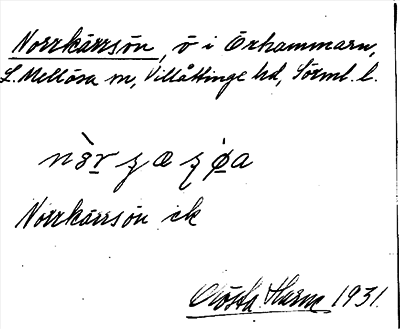 Norrkärrsön, ö i Örhammarn,
L. Mellösa sn, Villåttinge hd, Sörml. l.
Norrkärrsön ek
Gösta Harne 1931.